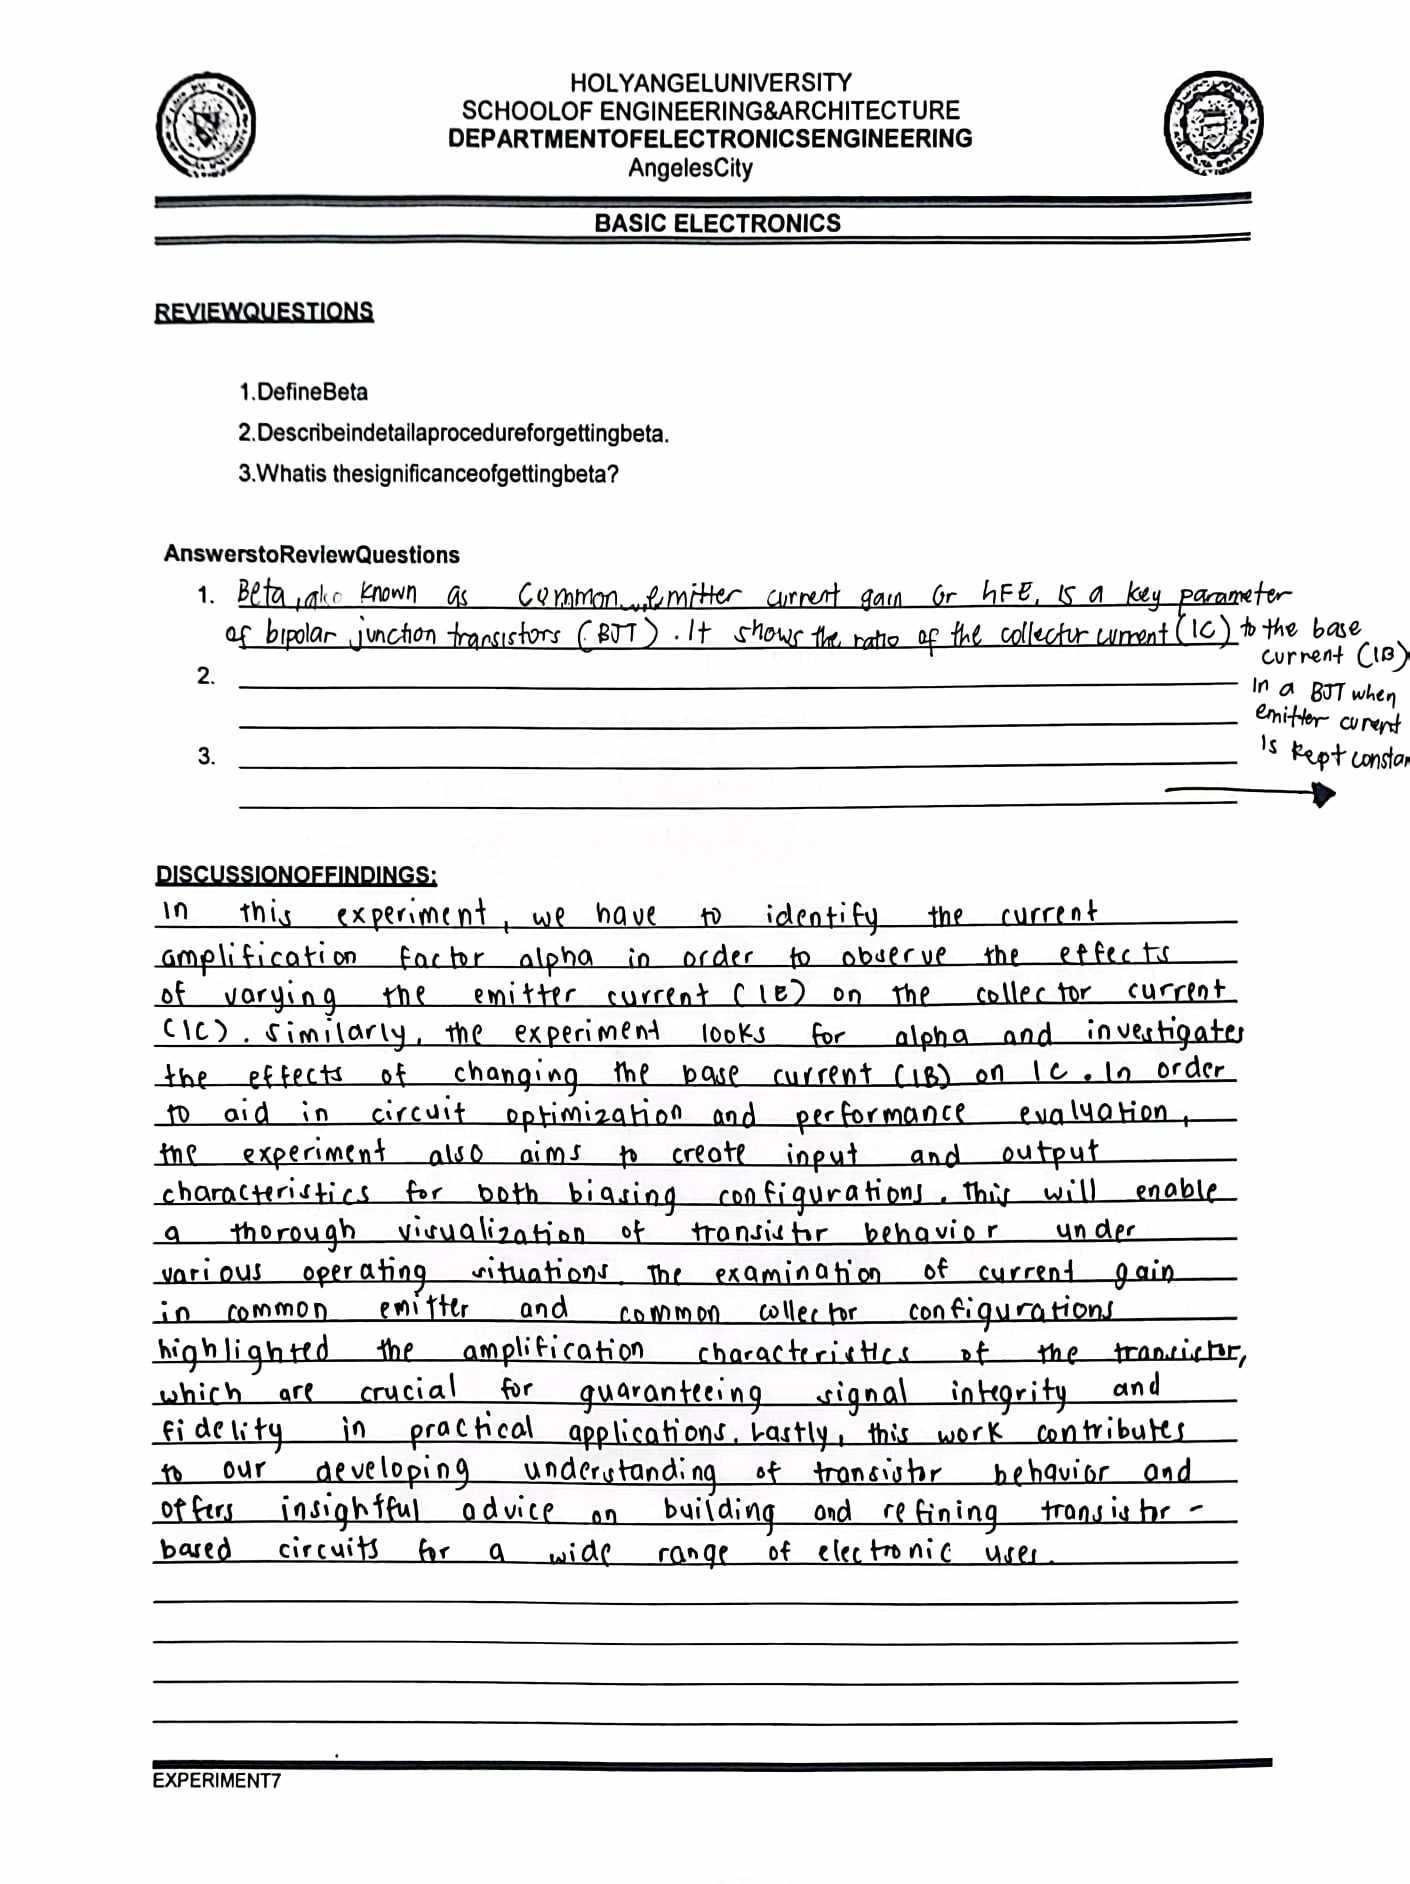 HOLYANGELUNIVERSITY
SCHOOLOF ENGINEERING&ARCHITECTURE
DEPARTMENTOFELECTRONICSENGINEERING
AngelesCity
BASIC ELECTRONICS
REVIEWQUESTIONS
1.DefineBeta
2.Describeindetailaprocedureforgettingbeta.
3.Whatis thesignificanceofgettingbeta?
AnswerstoReviewQuestions
1. Beta, also known as common emitter current gain or hFE, is a key parameter
of bipolar junction transistors (BJT). It shows the ratio of the collector current (IC) to the base
current (IB)
2.
In a BJT when
emitter curent
3.
is kept constan
DISCUSSIONOFFINDINGS:
In this experiment, we have to identify the current
amplification factor alpha in order to observe the effects
of varying the emitter current (IE) on the collector current
(IC). Similarly, the experiment looks for alpha and investigates
the effects of changing the base current (IB) on IC. In order
to aid in circuit optimization and performance evaluation,
the experiment also aims to create input and output
characteristics for both biasing configurations. This will enable
a thorough visualization of transistor behavior under
various operating situations. The examination of current gain
in common emitter and common collector configurations
highlighted the amplification characteristics of the transistor,
which are crucial for guaranteeing signal integrity and
fidelity in practical applications. Lastly, this work contributes
to our developing understanding of transistor behavior and
offers insightful advice on building and refining transistor-
based circuits for a wide range of electronic uses.
EXPERIMENT7